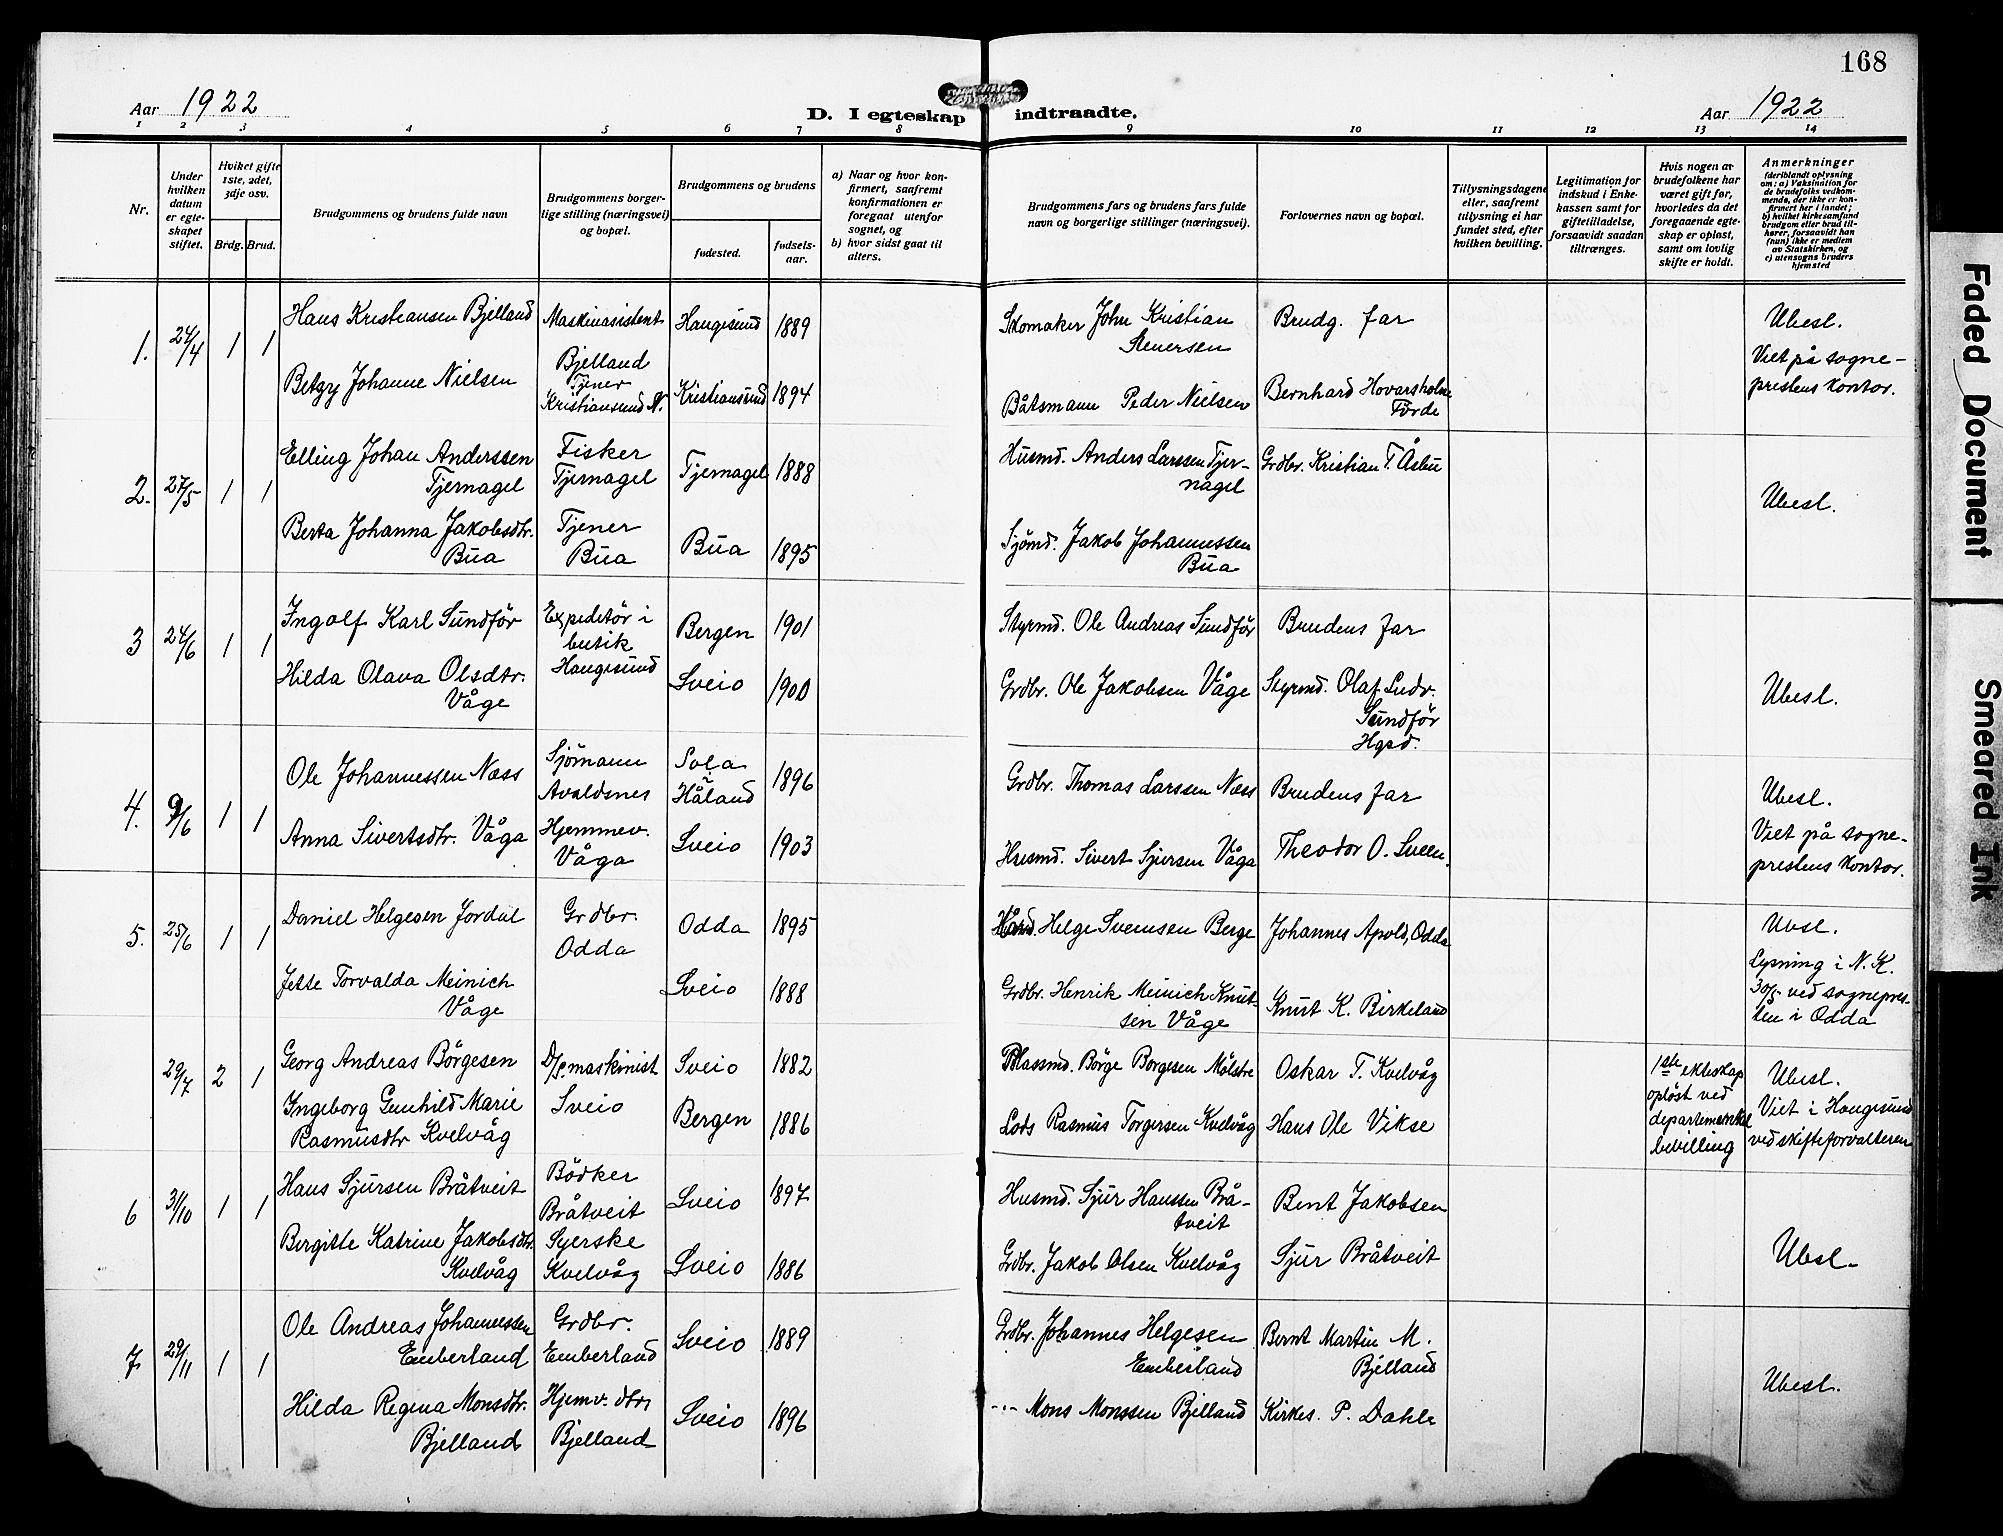 168
Aar 1922
D. I egteskap indtraadte.
Aar 1922
1 2 3 4 5 6 7 8 9 10 11 12 13 14
Nr.
Under
hvilken
datum
er egte-
skapet
stiftet.
Hviket gifte
1ste, 2det,
3dje osv.
Brdg. Brud.
Brudgommens og brudens fulde navn
Brudgommens borger-
lige stilling (næringsvei)
og bopæl.
Brudgommens og brudens
fødested.
fødsels-
aar.
a) Naar og hvor kon-
firmert, saafremt
konfirmationen er
foregaat utenfor
sognet, og
b) hvor sidst gaat til
alters.
Brudgommens fars og brudens fars fulde
navn og borgerlige stillinger (næringsvei).
Forlovernes navn og bopæl.
Tillysningsdagene
eller, saafremt
tillysning ei har
fundet sted, efter
hvilken bevilling.
Legitimation for
indskud i Enke-
kassen samt for
giftetilladelse,
forsaavidt saadan
tiltrænges.
Hvis nogen av
brudefolkene har
været gift før,
hvorledes da det
foregaaende egte-
skap er opløst,
samt om lovlig
skifte er holdt.
Anmerkninger
(deriblandt oplysning
om: a) Vaksination for
de brudefolks vedkom-
mende, der ikke er kon-
firmert her i landet;
b) hvilket kirkesamfund
brudgom eller brud til-
hører, forsaavidt han
(hun) ikke er medlem
av Statskirken, og
c) utensogns bruders
hjemsted
1. 24/4 1 1
Hans Kristiansen Bjelland
Maskinasistent
Bjelland
Haugesund 1889
Skomaker John Kristian
Stenersen
Brudg. far
Ubesl.
Viet på sogne-
prestens kontor.
Betzy Johanne Nielsen
Tjener
Kristiansund N.
Kristiansund 1894
Båtsmann Peder Nielsen
Bernhard Hovarsholm
Förde
2. 27/5 1 1
Elling Johan Anderssen
Tjernagel
Fisker
Tjernagel
Tjernagel 1888
Husmd. Anders Larssen Tjer-
nagel
Grdbr. Kristian T. Åsbu
Ubesl.
Berta Johanna Jakobsdtr.
Bua
Tjener
Bua
Bua 1895
Sjömd. Jakob Johannessen
Bua
3 24/6 1 1
Ingolf Karl Sundför
Expeditör i
butik
Haugesund
Bergen 1901
Styrmd. Ole Andreas Sundför
Brudens far
Hilda Olava Olsdtr.
Våge
Sveio 1900
Grdbr. Ole Jakobsen Våge
Styrmd. Olaf Ludv.
Sundför
Hgsd.
Ubesl.
4. 9/6 1 1
Ole Johannessen Næss
Sjömann
Avaldsnes
Sola
i
Håland
1896
Grdbr. Thomas Larssen Næss
Brudens far
Ubesl.
Viet på sogne-
prestens kontor.
Anna Sivertsdtr. Våga
Hjemmev.
Våga
Sveio 1903
Husmd. Sivert Sjursen Våga
Theodor O. Sveen.
5. 25/6 1 1
Daniel Helgesen Jordal
Grdbr.
Odda
Odda 1895
Helge Svensen Berge
Johannes Apold, Odda
Ubsl.
Lysning i N. K.
30/5 ved sognepres-
ten i Odda
Jette Torvalda Meinich
Våge
Sveio 1888
Grdbr. Henrik Meinich Knut-
sen Våge
Knut K. Birkeland
29/7 2 1
Georg Andreas Börgesen
D/s. maskinist
Sveio
Sveio 1882
Plassmd. Börge Borgesen Mölstre
Oskar T. Kvelvåg
1ste ekteskap
oplöst ved
departemental
bevilling
Ubesl.
Viet i Haugesund
ved skifteforvalteren
Ingeborg Gunhild Marie
Rasmusdtr Kvelvåg
Bergen 1886
Lods Rasmus Torgersen Kvelvåg
Hans Ole Vikse
6 31/10 1 1
Hans Sjursen Bråtveit
Bödker
Bråtveit
Sveio 1897
Husmd. Sjur Hanssen Brå-
tveit
Bent Jakobsen
Bergitte Katrine Jakobsdtr.
Kvelvåg
Syerske
Kvelvåg
Sveio 1886
Grdbr. Jakob Olsen Kvelvåg
Sjur Bråtveit
Ubsl.
7 29/11 1 1
Ole Andreas Johannessen
Emberland
Grdbr.
Emberland
Sveio 1889
Grdbr. Johannes Helgesen
Emberland
Bernt Martin M.
Bjelland
Ubesl.
Hilda Regina Monsdtr.
Bjelland
Hjemv. dtr.
Bjelland
Sveio 1896
-"- Mons Monssen Bjelland
Kirkes. P. Dahle
Faded Document
Smeared Ink